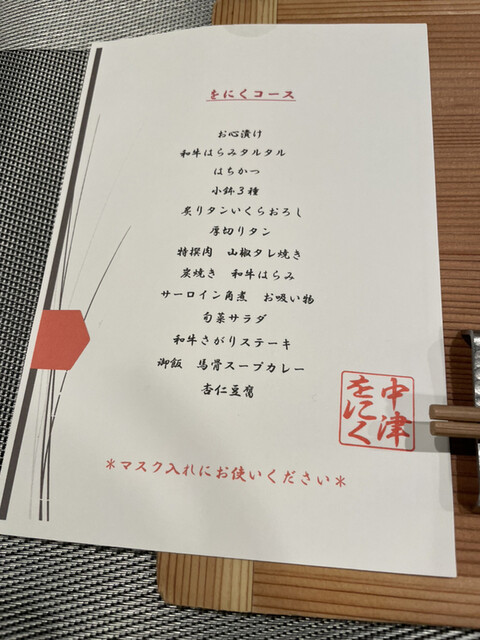 をにくコース
お心漬け
和牛はらみタルタル
はちかつ
小鉢3種
炙りタンいくらおろし
厚切りタン
特撰肉 山椒タレ焼き
炭焼き 和牛はらみ
サーロイン角煮 お吸い物
旬菜サラダ
和牛さがりステーキ
御飯 馬骨スープカレー
杏仁豆腐
中津
をにく
*マスク入れにお使いください*